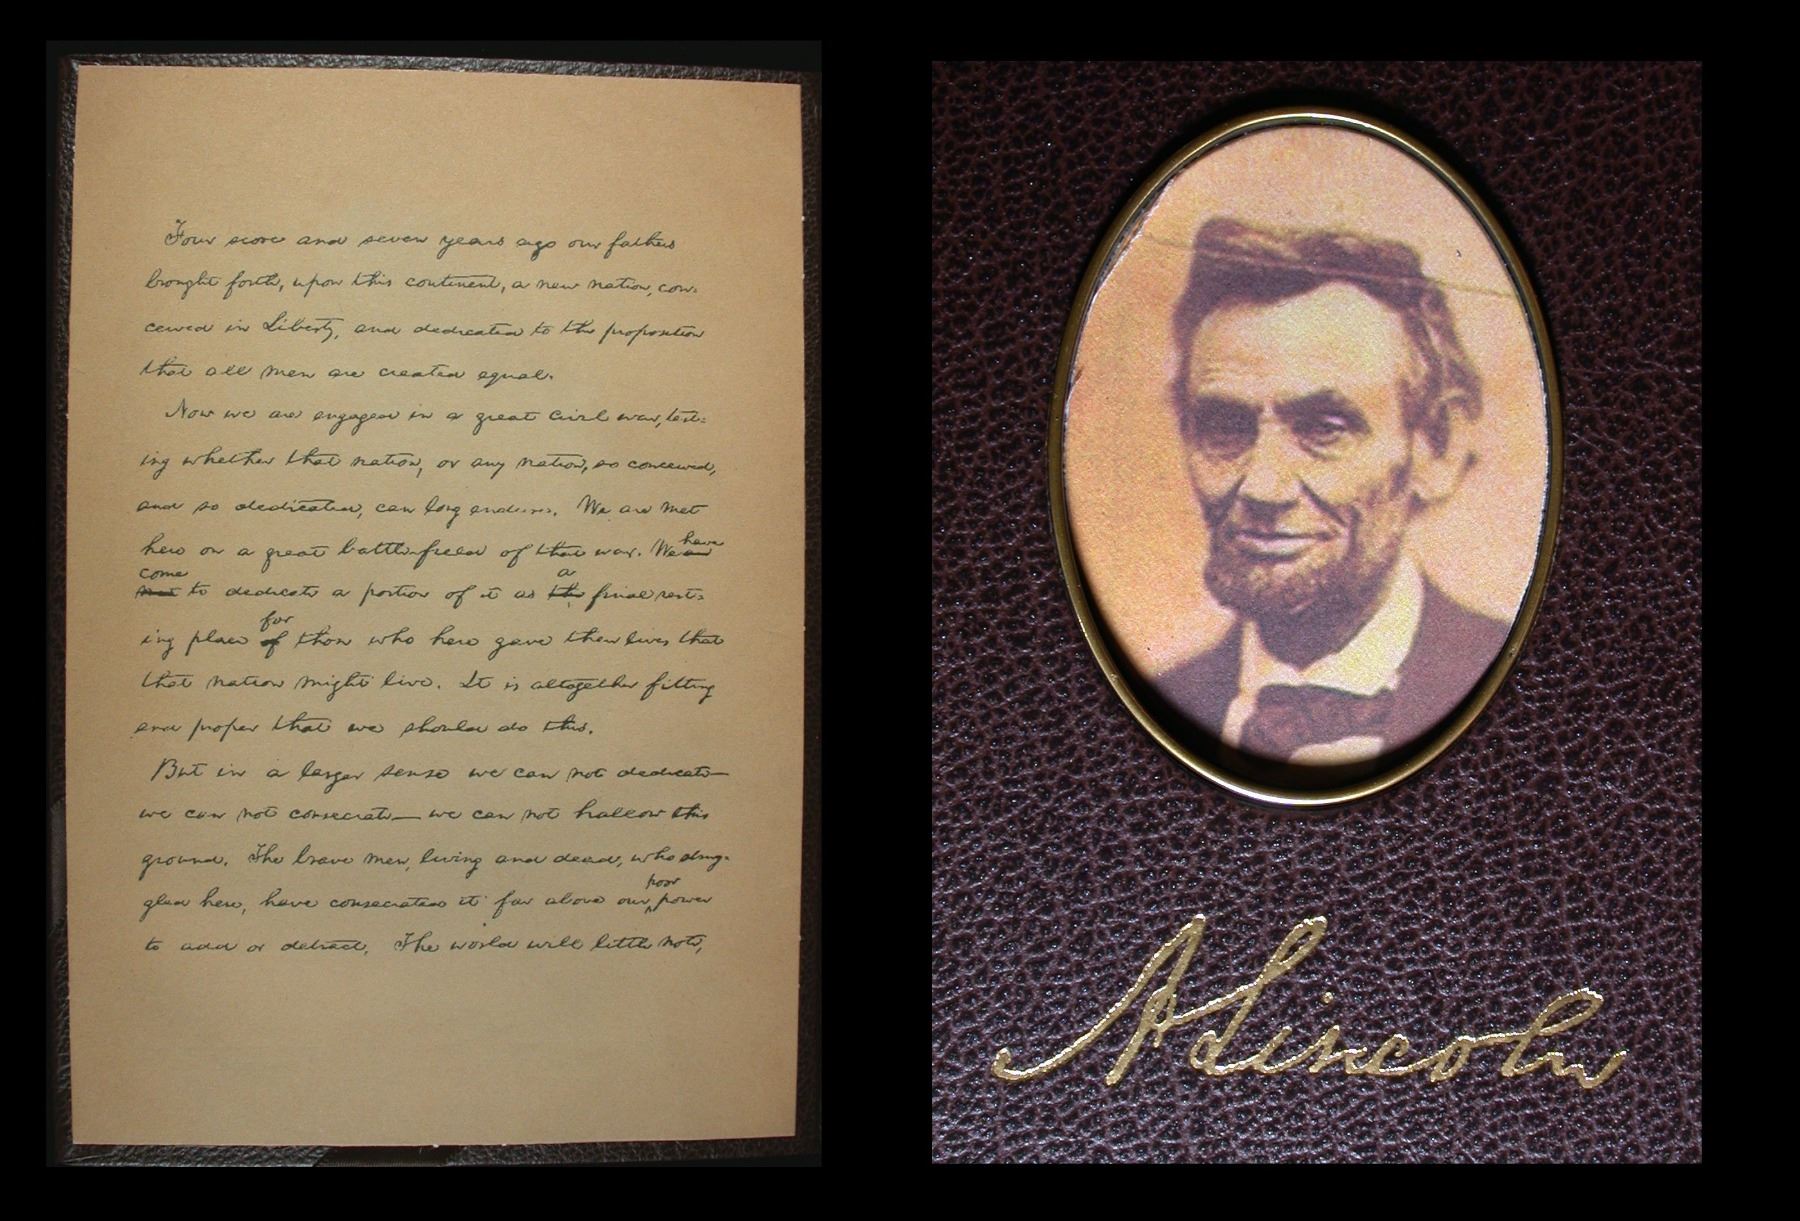 Four score and seven years ago our fathers
brought forth, upon this continent, a new nation, con-
ceived in Liberty, and dedicated to the proposition
that all men are created equal.
Now we are engaged in a great civil war, test-
ing whether that nation, or any nation, so conceived,
and so dedicated, can long endure. We are met
here on a great battle-field of that war. We are have
come
met to dedicate a portion of it as the a final rest-
for
ing place of those who here gave their lives that
that nation might live. It is altogether fitting
and proper that we should do this.
But in a larger sense we can not dedicate—
we can not consecrate—we can not hallow this
ground. The brave men, living and dead, who strug-
poor
gled here, have consecrated it far above our power
to add or detract. The world will little note,
A Lincoln